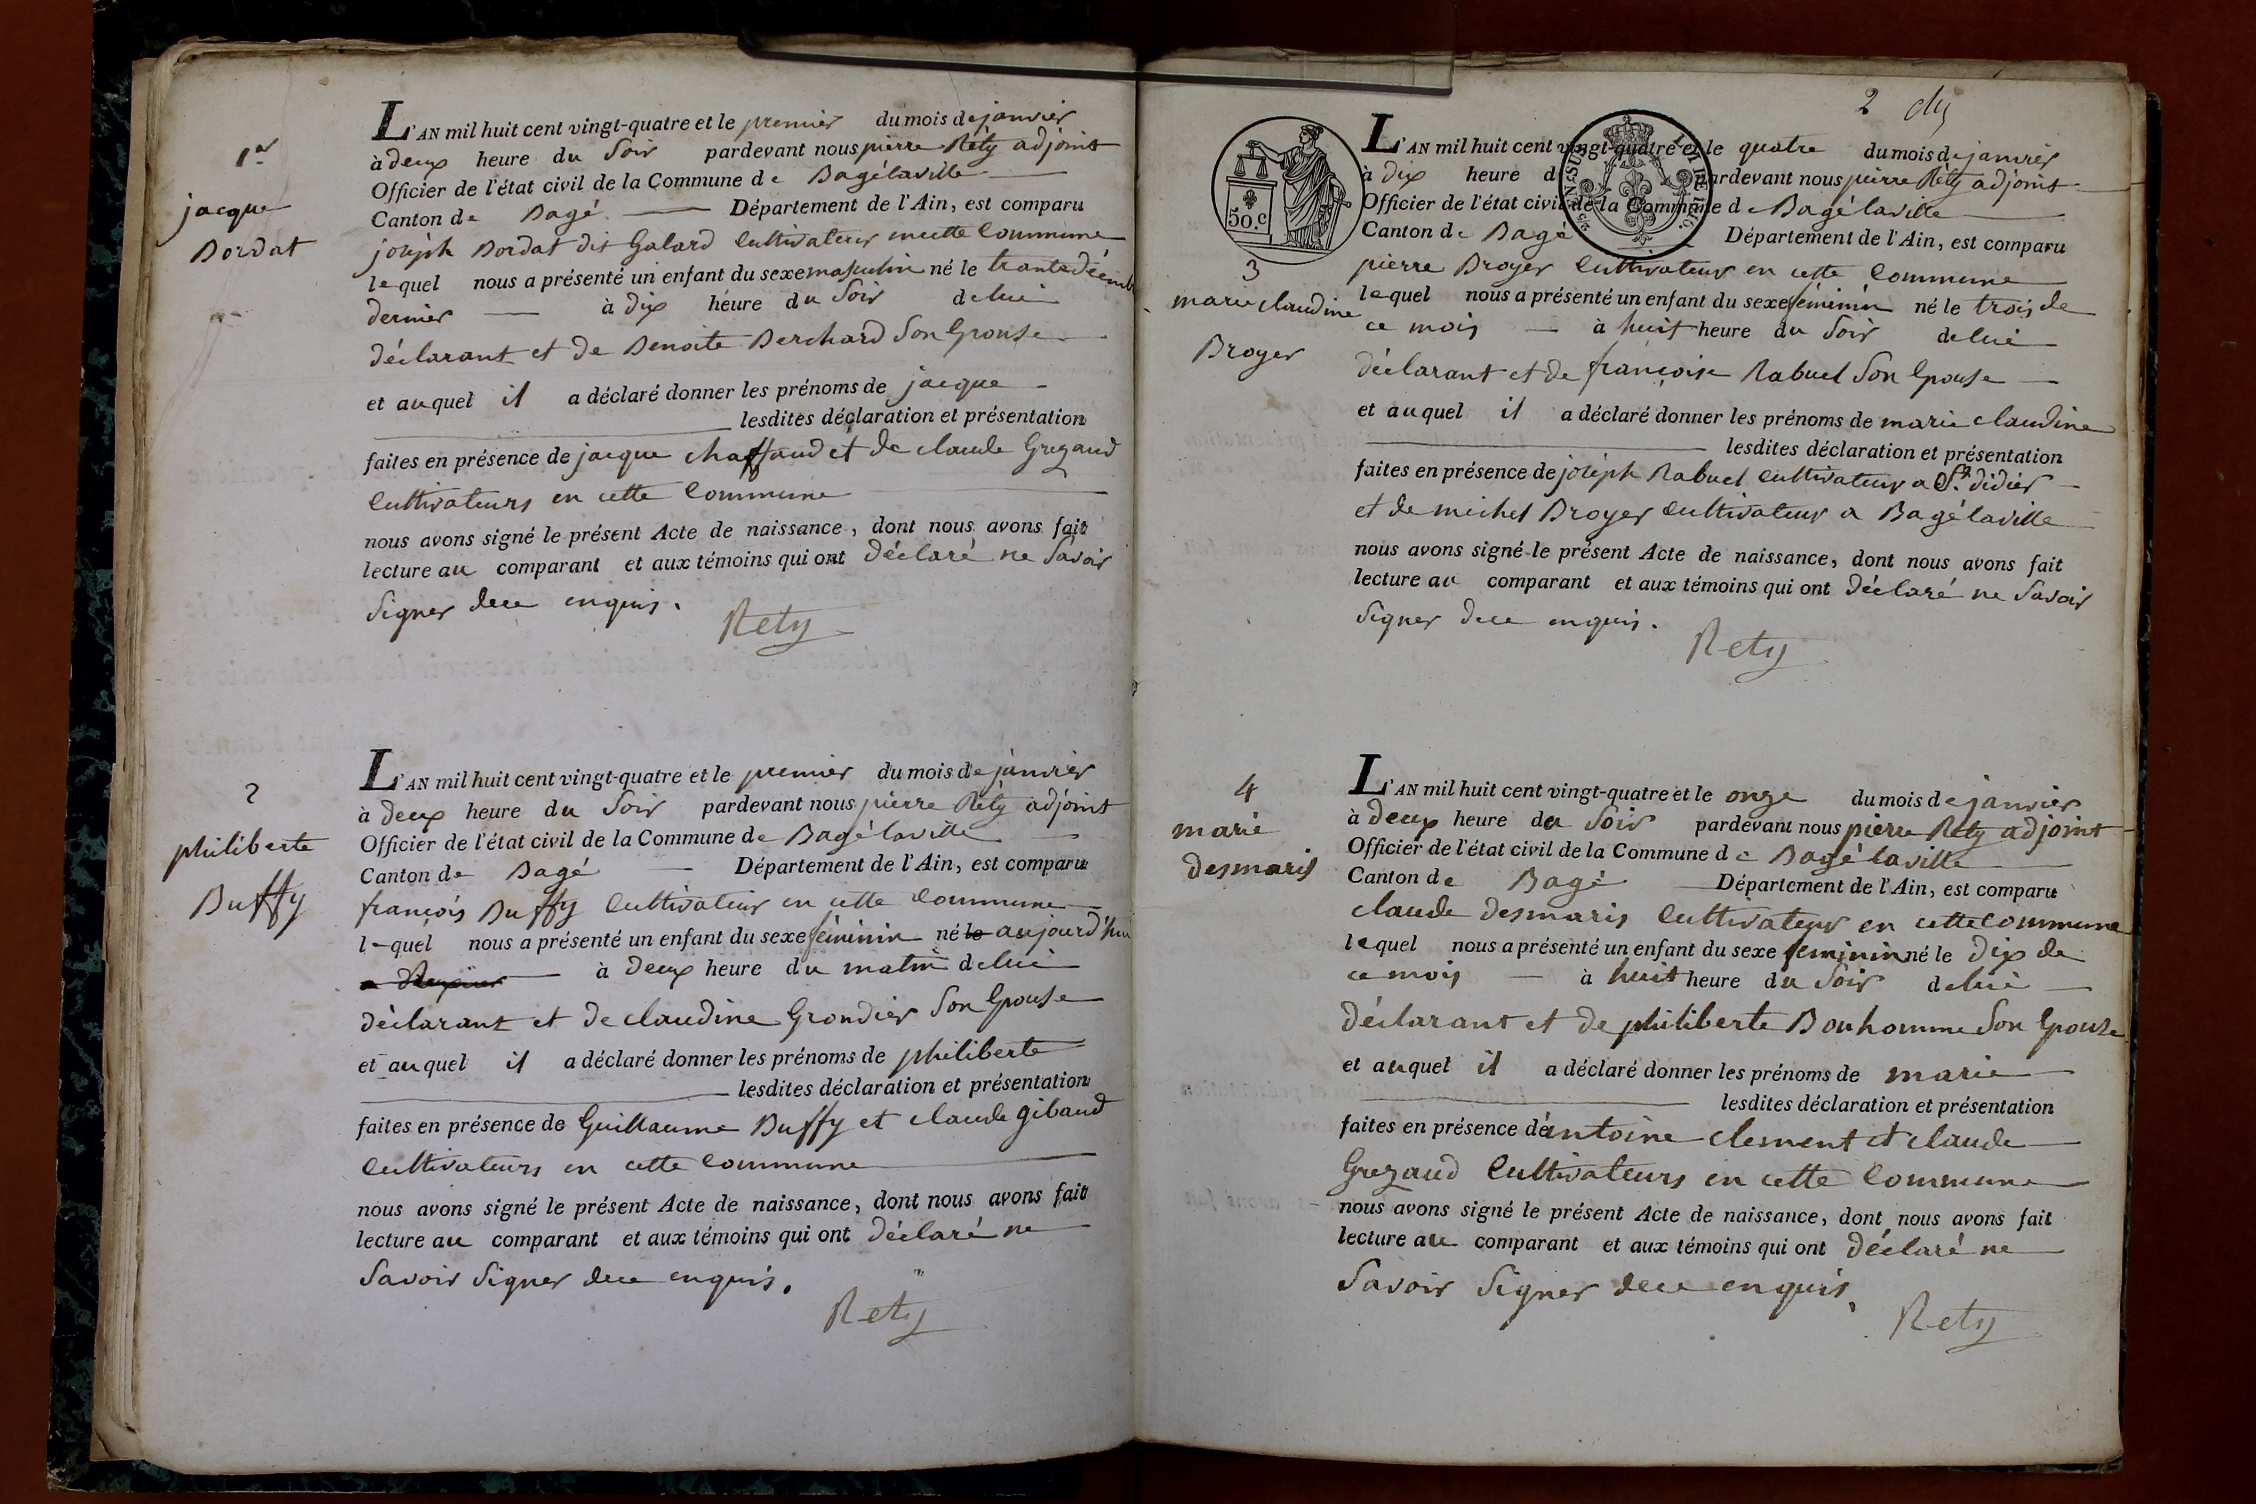 1er
jacque
Bordat
L'AN mil huit cent vingt-quatre et le premier du mois de janvier
à deux heure du soir pardevant nous pierre Réty adjoint
Officier de l'état civil de la Commune de Bagélaville
Canton de Bagé Département de l'Ain, est comparu
joseph Bordat dit Galard cultivateur en cette commune
lequel nous a présenté un enfant du sexe masculin né le trante décemb
dernier à dix heure du soir de lui
déclarant et de Benoite Berchard son Epouse
et auquel il a déclaré donner les prénoms de jacque
lesdites déclaration et présentation
faites en présence de jacque chaffaud et de claude Grezaud
cultivateurs en cette commune
nous avons signé le présent Acte de naissance, dont nous avons fait
lecture au comparant et aux témoins qui ont déclaré ne savoir
signer de ce enquis.
Rety
2
philiberte
Buffy
L'AN mil huit cent vingt-quatre et le premier du mois de janvier
à deux heure du soir pardevant nous pierre Réty adjoint
Officier de l'état civil de la Commune de Bagélaville
Canton de Bagé Département de l'Ain, est comparu
françois Buffy cultivateur en cette commune
lequel nous a présenté un enfant du sexe féminin né le aujourd'hui
à deux heure du matin de lui
déclarant et de claudine Grondier son Epouse
et auquel il a déclaré donner les prénoms de philiberte
lesdites déclaration et présentation
faites en présence de Guillaume Buffy et claude gibaud
cultivateurs en cette commune
nous avons signé le présent Acte de naissance, dont nous avons fait
lecture au comparant et aux témoins qui ont déclaré ne
savoir signer de ce enquis.
Rety
2
50.c
3
marie claudine
Broyer
L'AN mil huit cent vingt-quatre et le quatre du mois de janvier
à dix heure d pardevant nous pierre Réty adjoint
Officier de l'état civil de la Commune de Bagélaville
Canton de Bagé Département de l'Ain, est comparu
pierre Broyer cultivateur en cette commune
lequel nous a présenté un enfant du sexe féminin né le trois de
ce mois à huit heure du soir de lui
déclarant et de françoise Rabuel son Epouse
et auquel il a déclaré donner les prénoms de marie claudine
lesdites déclaration et présentation
faites en présence de joseph Rabuel cultivateur a St. didier
et de michel Broyer cultivateur a Bagélaville
nous avons signé le présent Acte de naissance, dont nous avons fait
lecture au comparant et aux témoins qui ont déclaré ne savoir
signer de ce enquis.
Rety
4
marie
desmaris
L'AN mil huit cent vingt-quatre et le onze du mois de janvier
à deux heure du soir pardevant nous pierre Réty adjoint
Officier de l'état civil de la Commune de Bagélaville
Canton de Bagé Département de l'Ain, est comparu
claude desmaris cultivateur en cette commune
lequel nous a présenté un enfant du sexe feminin né le dix de
ce mois à huit heure du soir de lui
déclarant et de philiberte Bonhomme son Epouse
et auquel il a déclaré donner les prénoms de marie
lesdites déclaration et présentation
faites en présence de antoine clement et claude
Grezaud cultivateurs en cette commune
nous avons signé le présent Acte de naissance, dont nous avons fait
lecture au comparant et aux témoins qui ont déclaré ne
savoir signer de ce enquis.
Rety